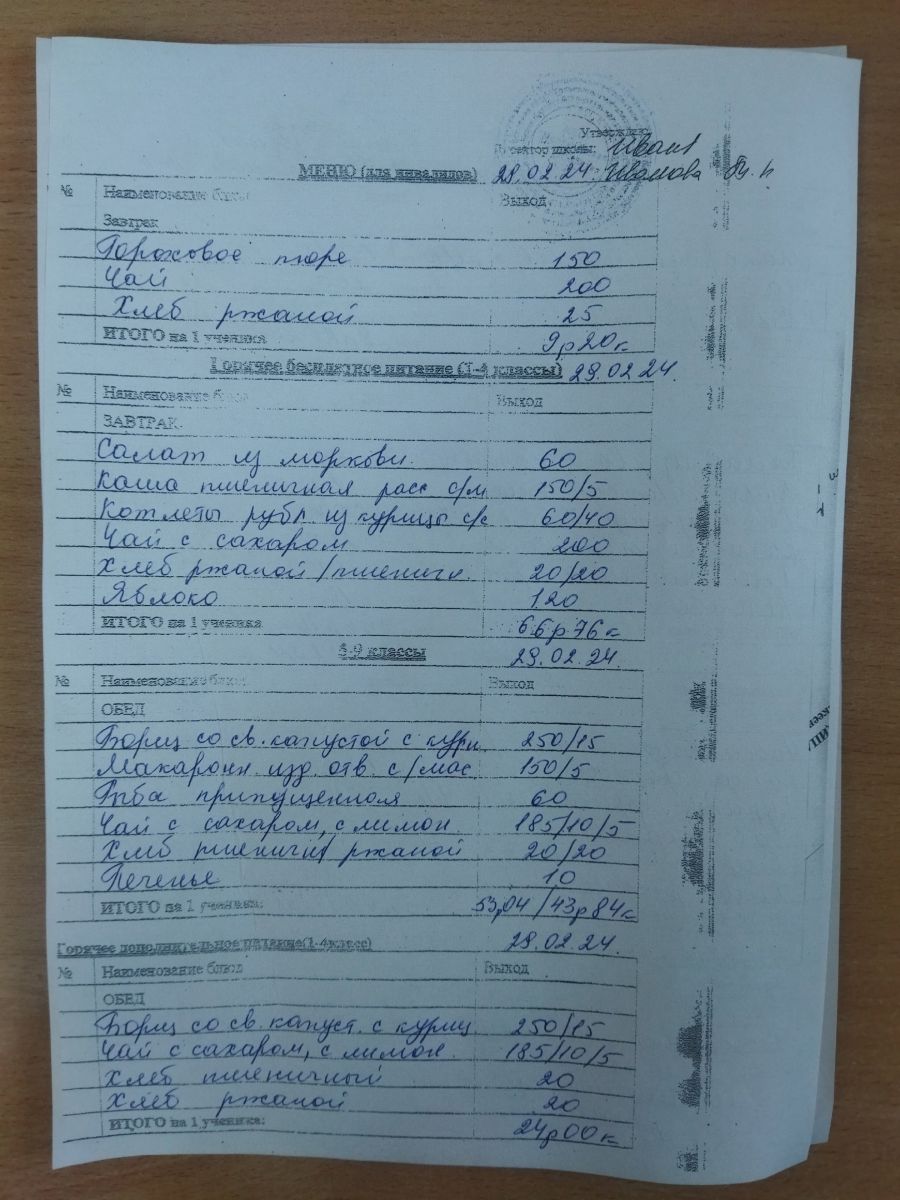 Утверждаю
Директор школы: Иван
МЕНЮ (для инвалидов) 29.02.24. Иванова
№ Наименование блюд Выход
Завтрак
Гороховое пюре 150
Чай 200
Хлеб ржаной 25
ИТОГО на 1 ученика 9р20к
Горячее бесплатное питание (1-4 классы) 29.02.24.
№ Наименование блюд Выход
ЗАВТРАК
Салат из моркови. 60
Каша пшеничная расс с/м 150/5
Котлеты рубл из курицы с/с 60/40
Чай с сахаром 200
Хлеб ржаной/пшеничн. 20/20
Яблоко 120
ИТОГО на 1 ученика 66р76к
5-9 классы 29.02.24.
№ Наименование блюд Выход
ОБЕД
Борщ со св.капустой с кури 250/15
Макаронн изд. отв. с/мас 150/5
Рыба припущенная 60
Чай с сахаром, с лимон. 185/10/5
Хлеб пшеничн/ ржаной 20/20
Печенье 10
ИТОГО на 1 ученика: 53р04/43р84к
Горячее дополнительное питание(1-4класс) 29.02.24.
№ Наименование блюд Выход
ОБЕД
Борщ со св.капуст. с куриц. 250/15
Чай с сахаром, с лимон. 185/10/5
Хлеб пшеничный 20
Хлеб ржаной 20
ИТОГО на 1 ученика: 24р00к